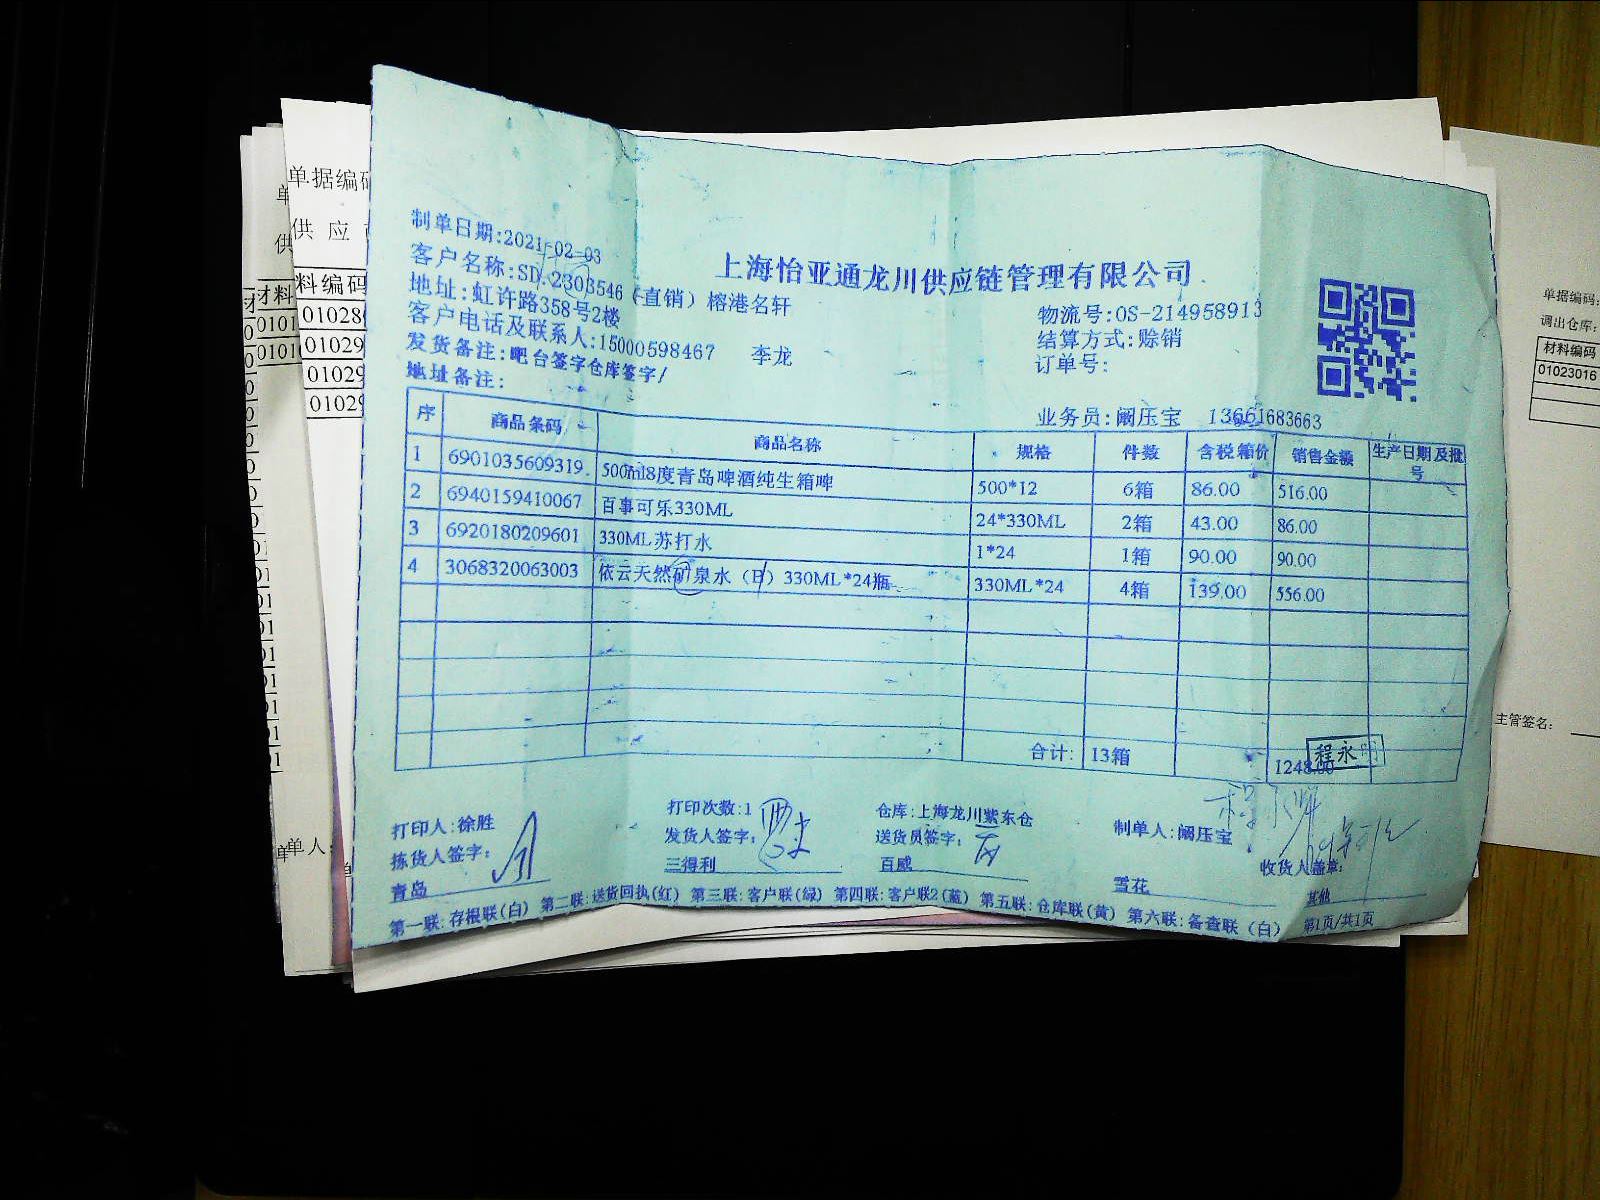 制单日期:2021-02-03
上海怡亚通龙川供应链管理有限公司
客户名称:SD.2303546（直销）榕港名轩
物流号:OS-214958913
地址:虹许路358号2楼
结算方式:赊销
客户电话及联系人:15000598467 李龙
订单号:
发货备注:吧台签字仓库签字/
地址备注:
业务员:阚压宝 13661683663
序 商品条码 商品名称 规格 件数 含税箱价 销售金额 生产日期及批号
1 6901035609319. 500ml8度青岛啤酒纯生箱啤 500*12 6箱 86.00 516.00
2 6940159410067 百事可乐330ML 24*330ML 2箱 43.00 86.00
3 6920180209601 330ML苏打水 1*24 1箱 90.00 90.00
4 3068320063003 依云天然矿泉水（日）330ML*24瓶 330ML*24 4箱 139.00 556.00
合计: 13箱 1248.00
程永明
打印人:徐胜 打印次数:1 仓库:上海龙川紫东仓 制单人:阚压宝
拣货人签字: 发货人签字: 送货员签字: 收货人盖章:
青岛 三得利 百威 雪花 其他
第一联:存根联(白) 第二联:送货回执(红) 第三联:客户联(绿) 第四联:客户联2(蓝) 第五联:仓库联(黄) 第六联:备查联(白) 第1页/共1页
单据编码
供应
料编码
01028
01029
01029
01029
单人:
单
供
材料
0101
0101
单据编码:
调出仓库:
材料编码
01023016
主管签名: